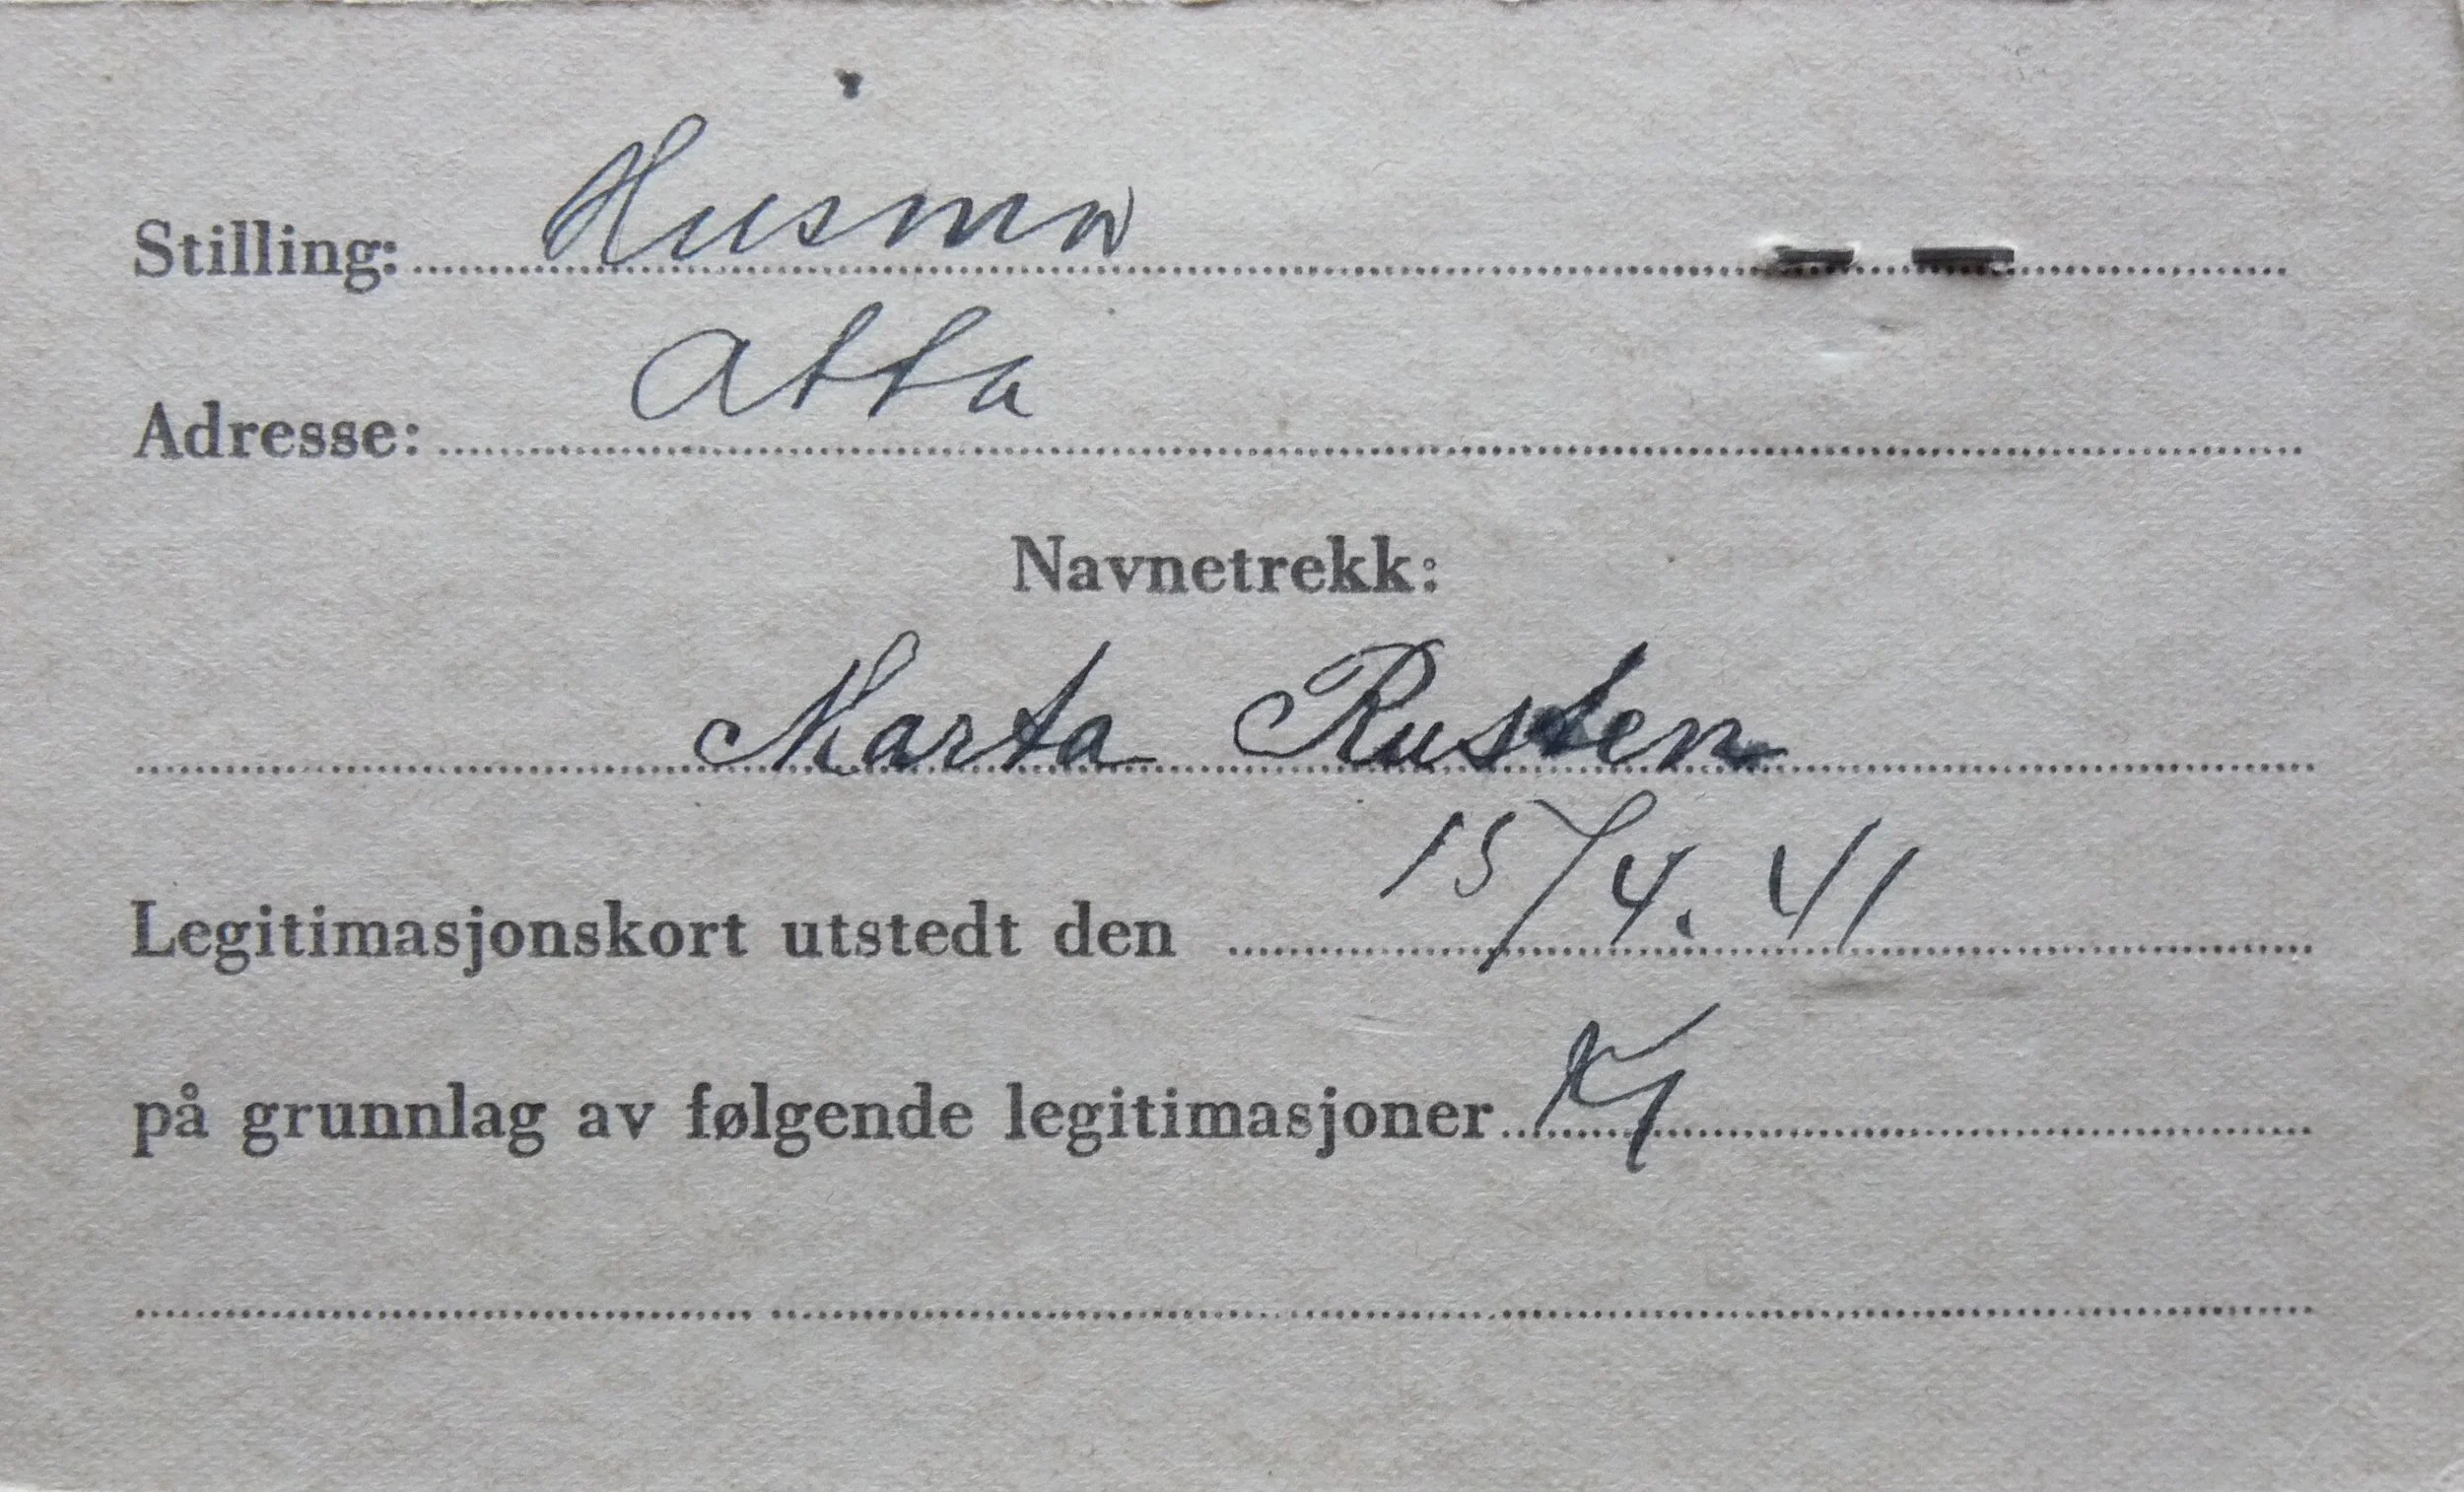 Stilling: Husmor
Adresse: Atta
Navnetrekk:
Marta Rusten
Legitimasjonskort utstedt den 15/4. 41
på grunnlag av følgende legitimasjoner